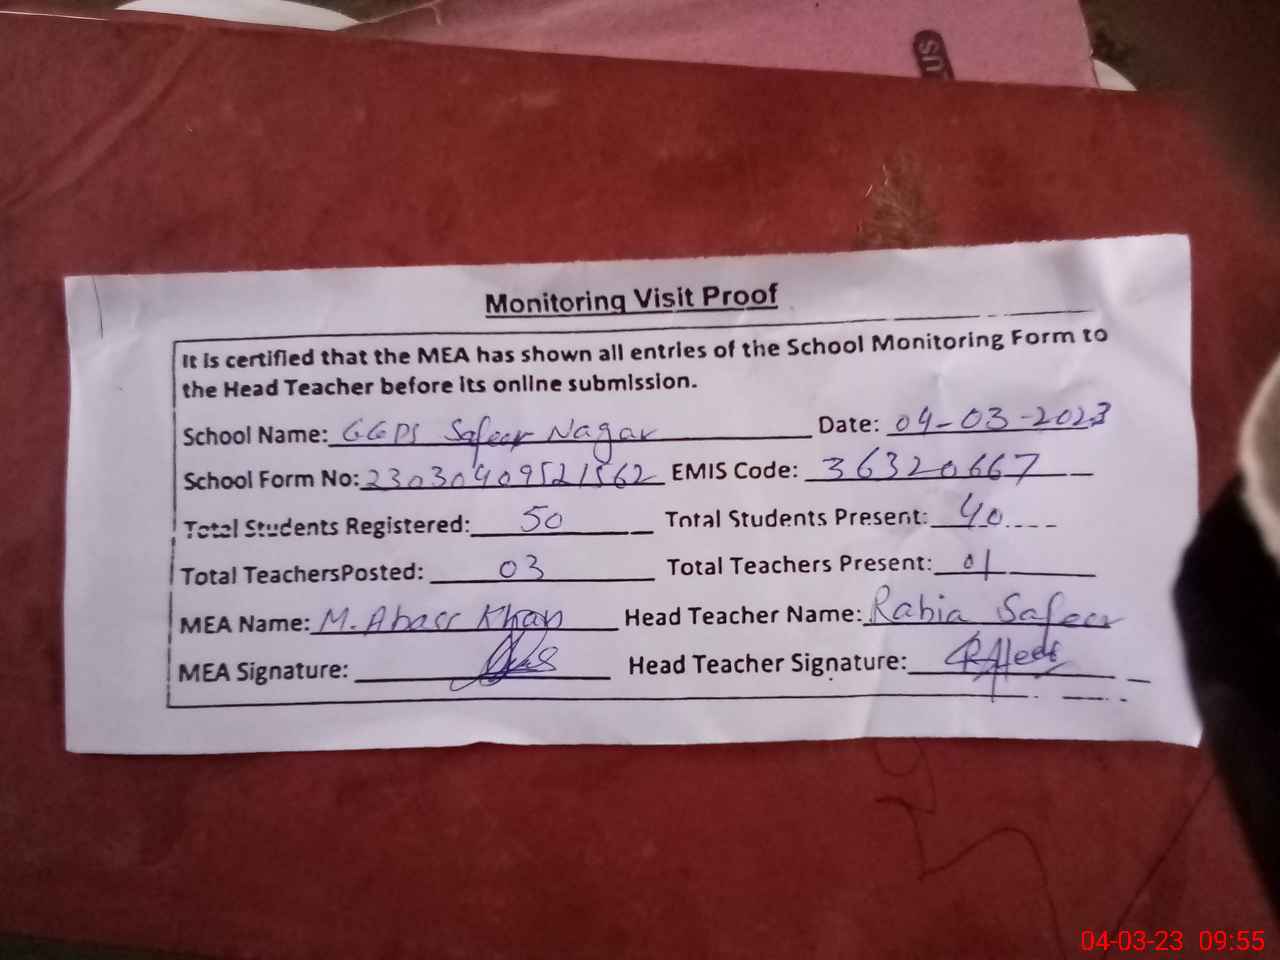 Monitoring Visit Proof
It is certified that the MEA has shown all entries of the School Monitoring Form to
the Head Teacher before its online submission.
School Name: GGPS Safeer Nagar Date: 04-03-2023
School Form No: 23030409521562 EMIS Code: 36320667
Total Students Registered: 50 Total Students Present: 40
Total TeachersPosted: 03 Total Teachers Present: 01
MEA Name: M. Abass Khan Head Teacher Name: Rabia Safeer
MEA Signature: Head Teacher Signature:
04-03-23 09:55